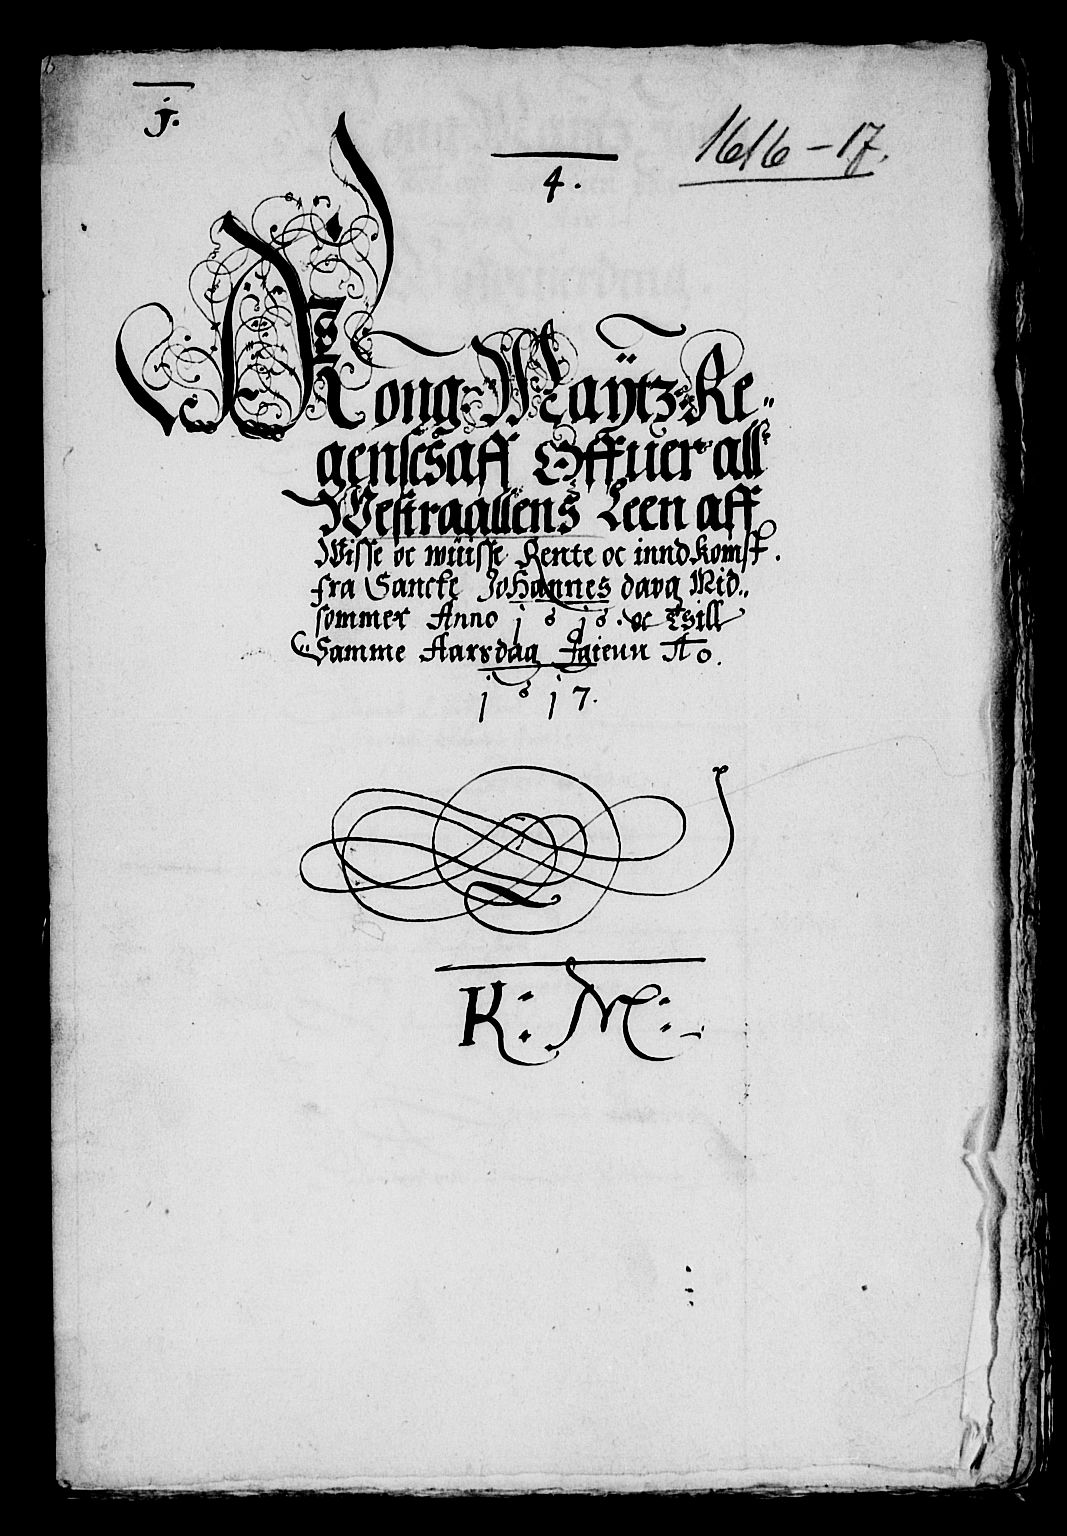 j.
4.
1616-17.
Kong: Maÿtz Re„
genschaff Offuer all
Westraallens Leen aff
Wisse oc wüisse Rente oc inndkomst.
fra Sancte Johannes davg Mid„
sommer Anno 1616. oc Thill
Samme Aarsdag Igienn Ao.
1617.
K: M: